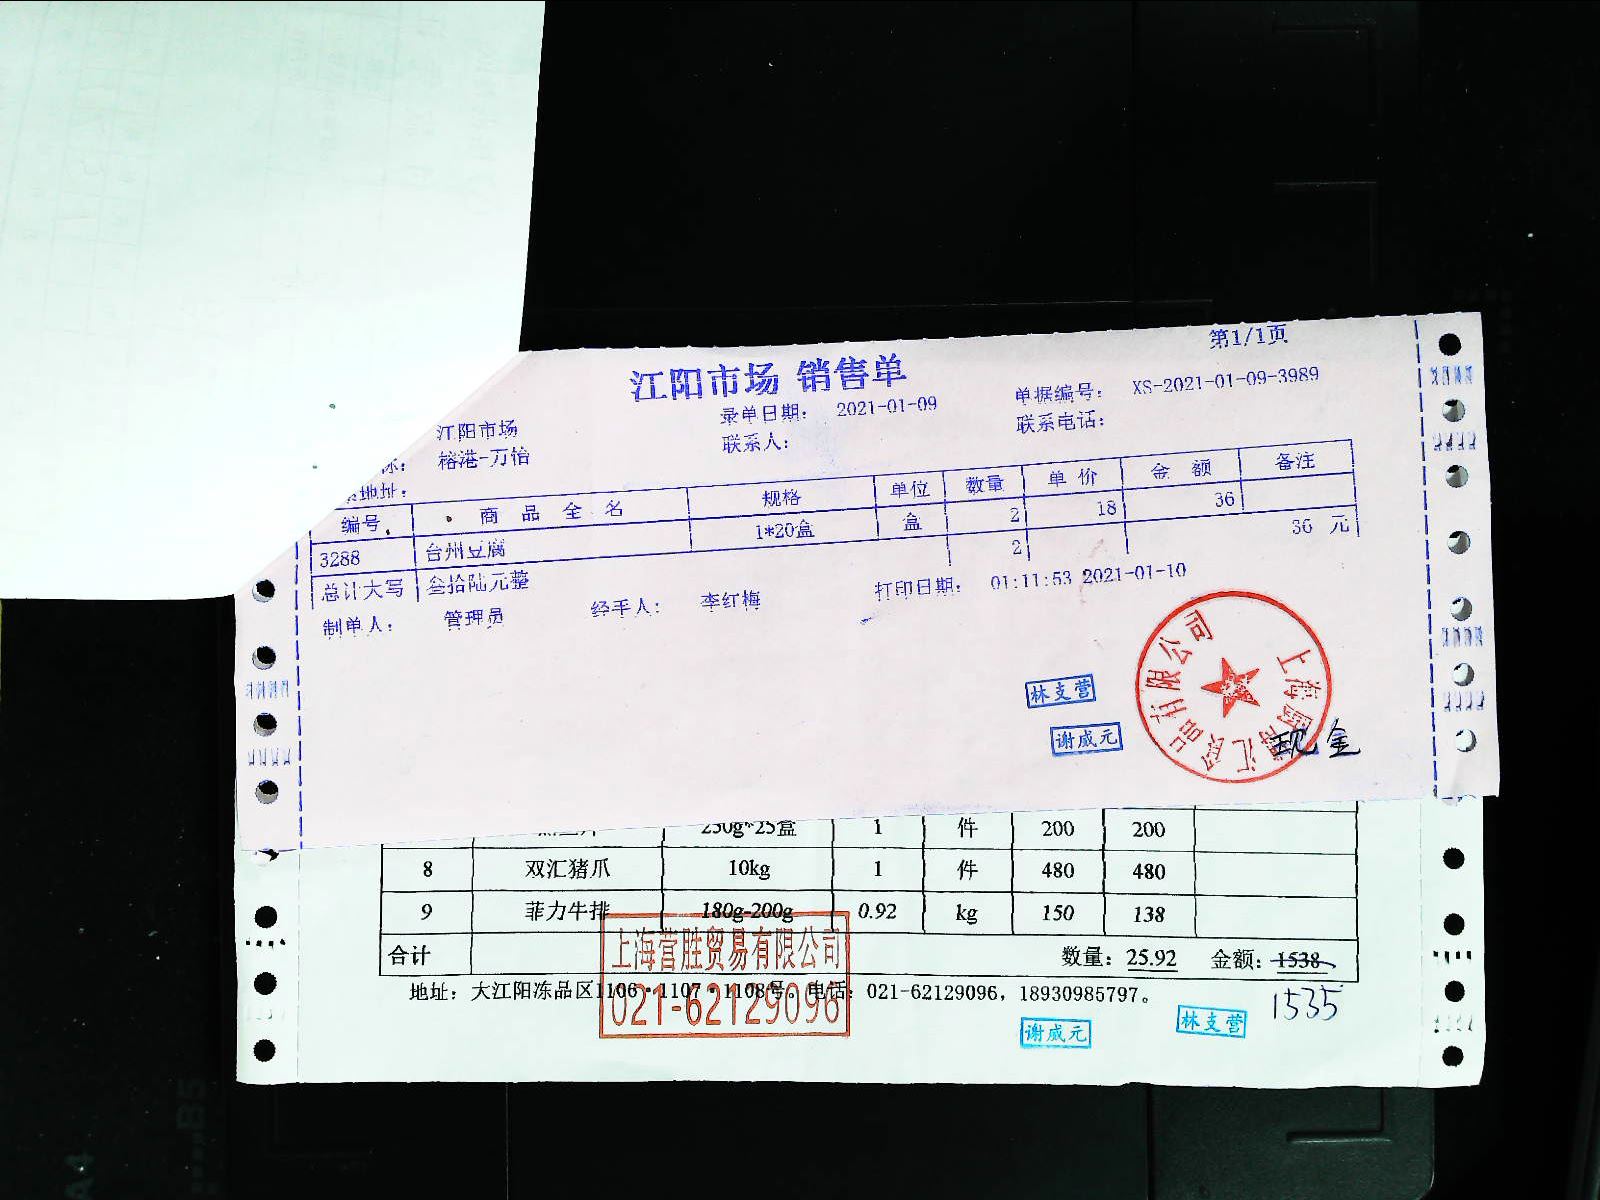 第1/1页
江阳市场 销售单
录单日期: 2021-01-09 单据编号: XS-2021-01-09-3989
江阳市场 联系人: 联系电话:
榕港-万怡
地址:
编号 商品全名 规格 单位 数量 单价 金额 备注
3288 台州豆腐 1*20盒 盒 2 18 36
2 36 元
总计大写 叁拾陆元整
制单人: 管理员 经手人: 李红梅 打印日期: 01:11:53 2021-01-10
林支营
谢成元
现金
250g*25盒 1 件 200 200
8 双汇猪爪 10kg 1 件 480 480
9 菲力牛排 180g-200g 0.92 kg 150 138
合计 数量: 25.92 金额: 1538
上海营胜贸易有限公司
地址: 大江阳冻品区1106·1107·1108号。电话: 021-62129096, 18930985797。
021-62129096
1535
谢成元
林支营